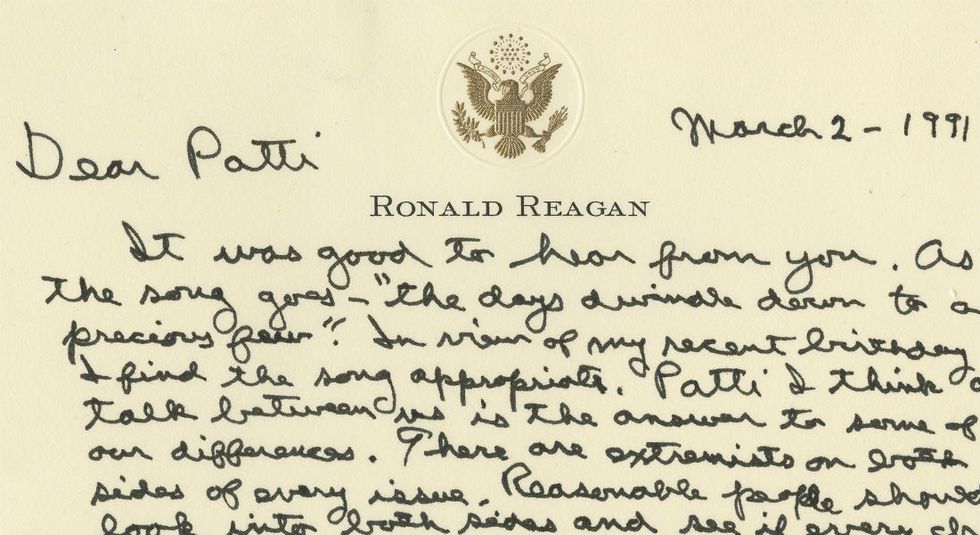 March 2 - 1991
Dear Patti
RONALD REAGAN
It was good to hear from you. As
the song goes - "the days dwindle down to a
precious few". In view of my recent birthday
I find the song appropriate. Patti I think a
talk between us is the answer to some of
our differences. There are extremists on both
sides of every issue. Reasonable people should
look into both sides and see if every